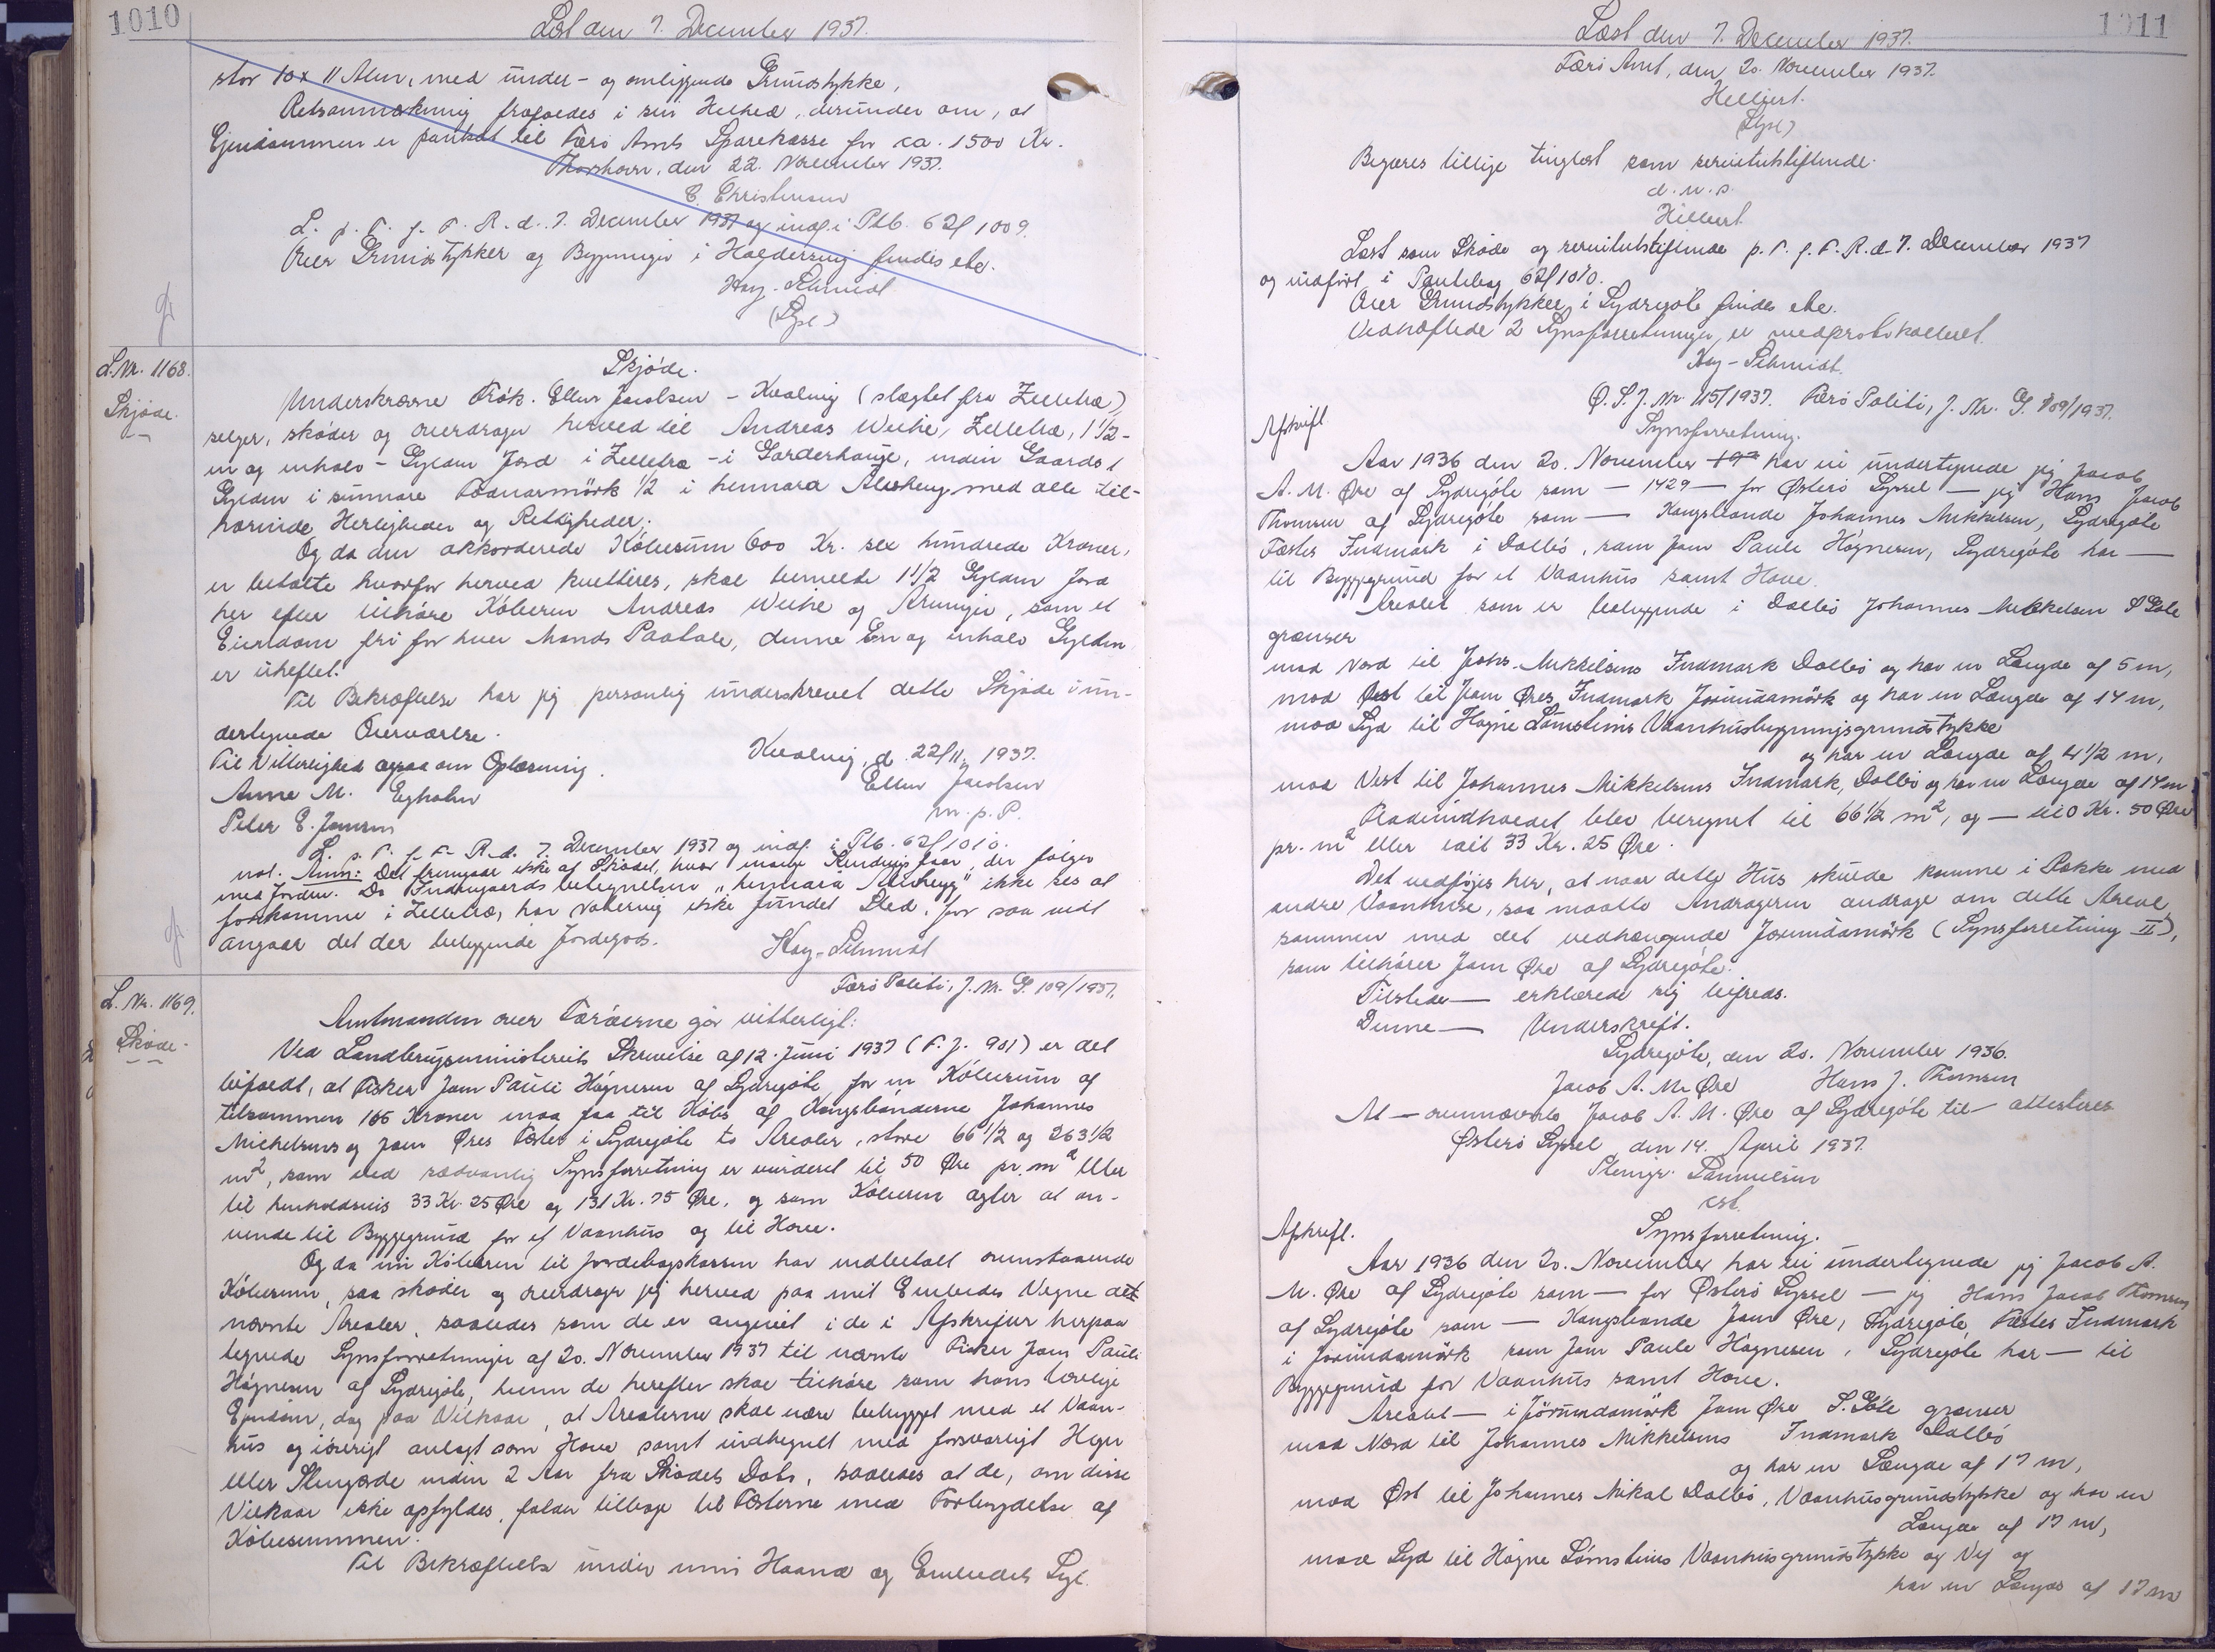 1010
Læst den 7. December 1937.
stor 10 x 11 Alen, med under- og omliggende Grundstykke,
Retsanmærkning frafaldes i sin Helhed, derunder om, at
Ejendommen er pantsat til Færø Amts Sparekasse for ca. 1500 Kr.
Thorshavn, den 22. November 1937.
C. Christensen
L. p. T. f. F. R. d. 7. December 1937 og indf. i Ptb. 62f 1009.
Over Grundstykker og Bygninger i Haldersvig findes etc.
Hay-Schmidt
(Sgl)
L. Nr. 1168.
Skjøde.
Skjøde.
Underskrevne Frøk. Ellen Jacobsen - Kvalvig (slægtet fra Zelletræ)
sælger, skøder og overdrager herved til Andreas Weihe, Zelletræ, 1 1/2 -
en og enhalv - Gylden Jord i Zelletræ - i Garderhauge, inden Gaards 1
Gylden i sunnare 1/2 i hennara med alle til-
hørende Herligheder og Rettigheder.
Og da den akkorderede Købesum 600 Kr. sex hundrede Kroner,
er betalte hvorfor herved kvitteres, skal bemeldte 1 1/2 Gylden Jord
her efter tilhøre Køberen Andreas Weihe og Arvinger, som et
Eiendom fri for hver Mands Paatale, denne En og enhalv Gylden
er uheftet.
Til Bekræftelse har jeg personlig underskrevet dette Skjøde i un-
dertegnede Overværelse.
Kvalvig, d. 22/11 1937.
Til Vitterlighed ogsaa om Oplæsning.
Ellen Jacobsen
Anne M. Egholm
m. p. P.
Peter E. Jensen
L. p. T. f. F. R. d. 7. December 1937 og indf. i Ptb. 62f 1010.
not. Anm: Det fremgaar ikke af Skødet, hvor mange der følger
med Jorden. Da Indengaardsbetegnelsen "hennara " ikke ses at
forekomme i Zelletræ, har Notering ikke fundet Sted, for saa vidt
angaar det der beliggende Jordegods.
Hay-Schmidt
Færø Politi, J. Nr. G. 109/1937.
L. Nr. 1169.
Skøde.
Amtmanden over Færøerne gør vitterligt:
Ved Landbrugsministeriets Skrivelse af 12. Juni 1937 (F. J. 901) er det
bifaldt, at Fisker Jam Pauli Høgnesen af Sydregøte for en Købesum af
tilsammen 165 Kroner maa faa til Købs af Kongsbønderne Johannes
Michelsens og Jam Øres Fæster i Sydregøte to Arealer, store 66 1/2 og 263 1/2
m², som ved sædvanlig Synsforretning er vurderet til 50 Øre pr. m² eller
til henholdsvis 33 Kr. 25 Øre og 131 Kr. 75 Øre, og som Køberen agter at an-
vende til Byggegrund for et Vaanhus og til Have.
Og da nu Køberen til Jordebogskassen har indbetalt ovenstaaende
Købesum, saa skøder og overdrager jeg herved paa mit Embedes Vegne det
nævnte Arealer, saaledes som de er angivet i de i Afskrifter herpaa
tegnede Synsforretninger af 20. November 1937 til nævnte Fisker Jam Pauli
Høgnesen af Sydregøte, hvem de herefter skal tilhøre som hans lovlige
Ejendom, dog paa Vilkaar, at Arealerne skal være bebygget med et Vaan-
hus og iøvrigt anlagt som Have samt indhegnet med forsvarligt Hegn
eller Stengærde inden 2 Aar fra Skødets Dato, saaledes at de, om disse
Vilkaar ikke opfyldes, falder tilbage til Fæsterne med Fortabelse af
Købesummen.
Til Bekræftelse under min Haand og Embedets Segl.
1011
Læst den 7. December 1937.
Færø Amt, den 20. November 1937.
Hilbert.
(Sgl)
Begæres tillige tinglæst som servitutstiftende.
d. u. s.
Hilbert
Læst som Skøde og servitutstiftende p. T. f. F. R. d. 7. December 1937
og indført i Pantebog 62f 1010.
Over Grundstykker i Sydregøte findes etc.
Vedhæftede 2 Synsforretninger er medprotokolleret.
Hay-Schmidt.
Ø. S. J. Nr. 115/1937. Færø Politi, J. Nr. G. 109/1937.
Afskrift
Synsforretning.
Aar 1936 den 20. November har vi undertegnede jeg Jacob
A. M. Øre af Sydregøte som — 1429 — for Østerø Syssel — jeg Hans Jacob
Thomsen af Sydregøte som — Kongsbonde Johannes Mikkelsen, Sydregøte
Fæstes Indmark i Dalbø, som Jam Paule Høgnesen, Sydregøte har —
til Byggegrund for et Vaanhus samt Have.
Arealet som er beliggende i Dalbø Johannes Mikkelsen S Gøte
grænser
mod Nord til Johs. Mikkelsens Indmark Dalbø og har en Længde af 5 m,
mod Øst til Jam Øres Indmark Jørundamørk og har en Længde af 14 m,
mod Syd til Høgne Lømsteins Vaanhusbygningsgrundstykke
og har en Længde af 4 1/2 m,
mod Vest til Johannes Mikkelsens Indmark, Dalbø og har en Længde af 14 m
Fladeindholdet blev beregnet til 66 1/2 m², og — til 0 Kr. 50 Øre
pr. m² eller ialt 33 Kr. 25 Øre.
Det vedføjes her, at naar dette Hus skulde komme i Række med
andre Vaanhuse, saa maatte Andrageren andrage om dette Areal
sammen med det vedhængende Jørundamørk (Synsforretning II),
som tilhører Jam Øre af Sydregøte.
Tilstede — erklærede sig tilfreds.
Denne — Underskrift.
Sydregøte, den 20. November 1936.
Jacob A. M. Øre Hans J. Thomsen
At — ovennævnte Jacob A. M. Øre af Sydregøte til — attesteres
Østerø Syssel den 14. April 1937.
Stengr. Samuelsen
cst.
Afskrift.
Synsforretning.
Aar 1936 den 20. November har vi undertegnede jeg Jacob A.
M. Øre af Sydregøte som — for Østerø Syssel — jeg Hans Jacob Thomsen
af Sydregøte som — Kongsbonde Jam Øre, Sydregøte, Fæstes Indmark
i Jørundamørk som Jam Paule Høgnesen, Sydregøte har — til
Byggegrund for Vaanhus samt Have.
Arealet — i Jørundamørk Jam Øre S. Gøte grænser
mod Nord til Johannes Mikkelsens Indmark Dalbø
og har en Længde af 17 m,
mod Øst til Johannes Mikal Dalbø, Vaanhusgrundstykke og har en
Længde af 17 m,
mod Syd til Høgne Lømsteins Vaanhusgrundstykke og Vej og
har en Længde af 17 m